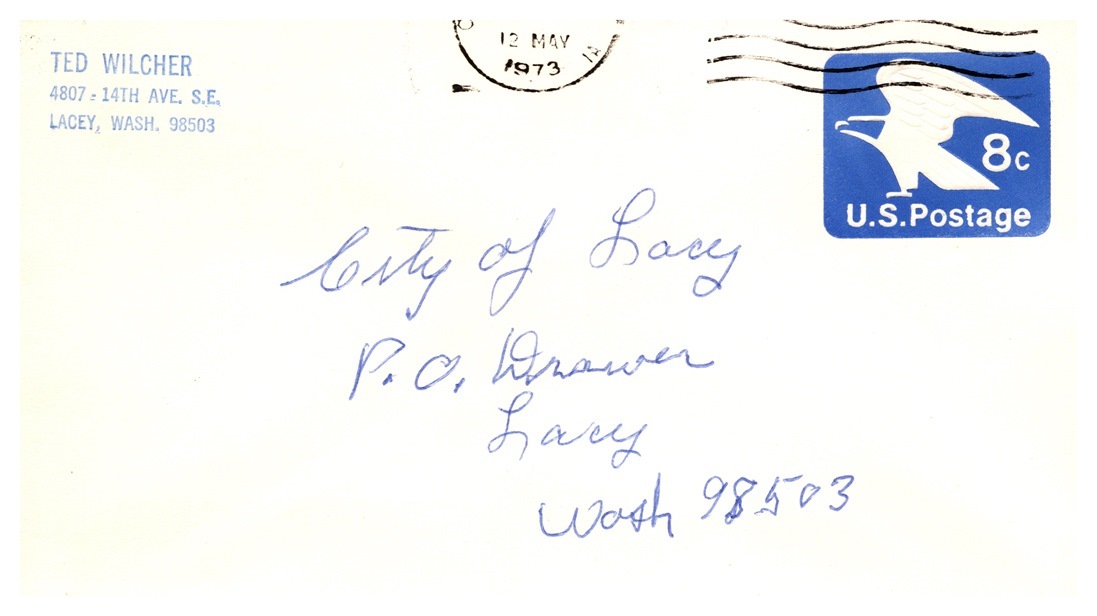 TED WILCHER
4807 - 14TH AVE. S.E.
LACEY, WASH. 98503
12 MAY
1973
8c
U.S. Postage
City of Lacey
P.O. Drawer
Lacey
Wash 98503